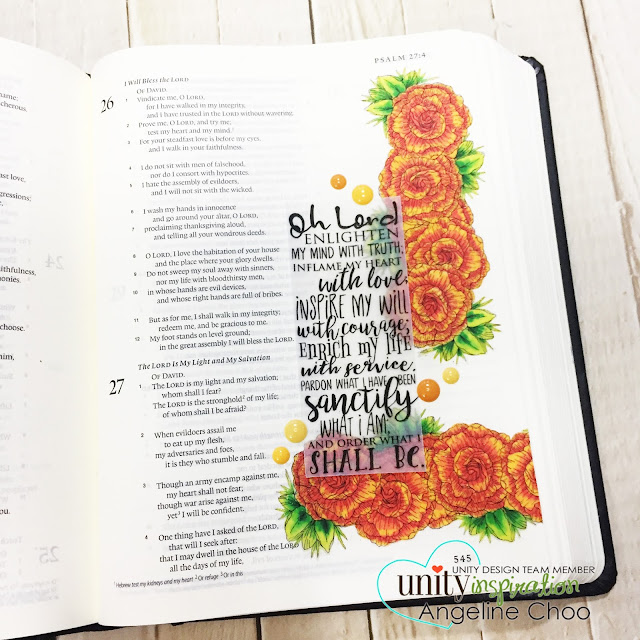 PSALM 27:4
I Will Bless the LORD
OF DAVID.
26
1 Vindicate me, O LORD,
for I have walked in my integrity,
and I have trusted in the LORD without wavering.
2 Prove me, O LORD, and try me;
test my heart and my mind.
3 For your steadfast love is before my eyes,
and I walk in your faithfulness.
4 I do not sit with men of falsehood,
nor do I consort with hypocrites.
5 I hate the assembly of evildoers,
and I will not sit with the wicked.
6 I wash my hands in innocence
and go around your altar, O LORD,
7 proclaiming thanksgiving aloud,
and telling all your wondrous deeds.
8 O LORD, I love the habitation of your house
and the place where your glory dwells.
9 Do not sweep my soul away with sinners,
nor my life with bloodthirsty men,
10 in whose hands are evil devices,
and whose right hands are full of bribes.
11 But as for me, I shall walk in my integrity;
redeem me, and be gracious to me.
12 My foot stands on level ground;
in the great assembly I will bless the LORD.
The LORD Is My Light and My Salvation
OF DAVID.
27
1 The LORD is my light and my salvation;
whom shall I fear?
The LORD is the stronghold2 of my life;
of whom shall I be afraid?
2 When evildoers assail me
to eat up my flesh,
my adversaries and foes,
it is they who stumble and fall.
3 Though an army encamp against me,
my heart shall not fear;
though war arise against me,
yet3 I will be confident.
4 One thing have I asked of the LORD,
that will I seek after:
that I may dwell in the house of the LORD
all the days of my life,
Hebrew test my kidneys and my heart 2 Or refuge 3 Or in this
545
Oh Lord
ENLIGHTEN
MY MIND WITH TRUTH;
INFLAME MY HEART
with love
INSPIRE MY WILL
with courage;
ENRICH MY LIFE
with service.
PARDON WHAT I HAVE BEEN
sanctify
WHAT I AM;
AND ORDER WHAT I
SHALL BE.
UNITY DESIGN TEAM MEMBER
unity inspiration
Angeline Choo